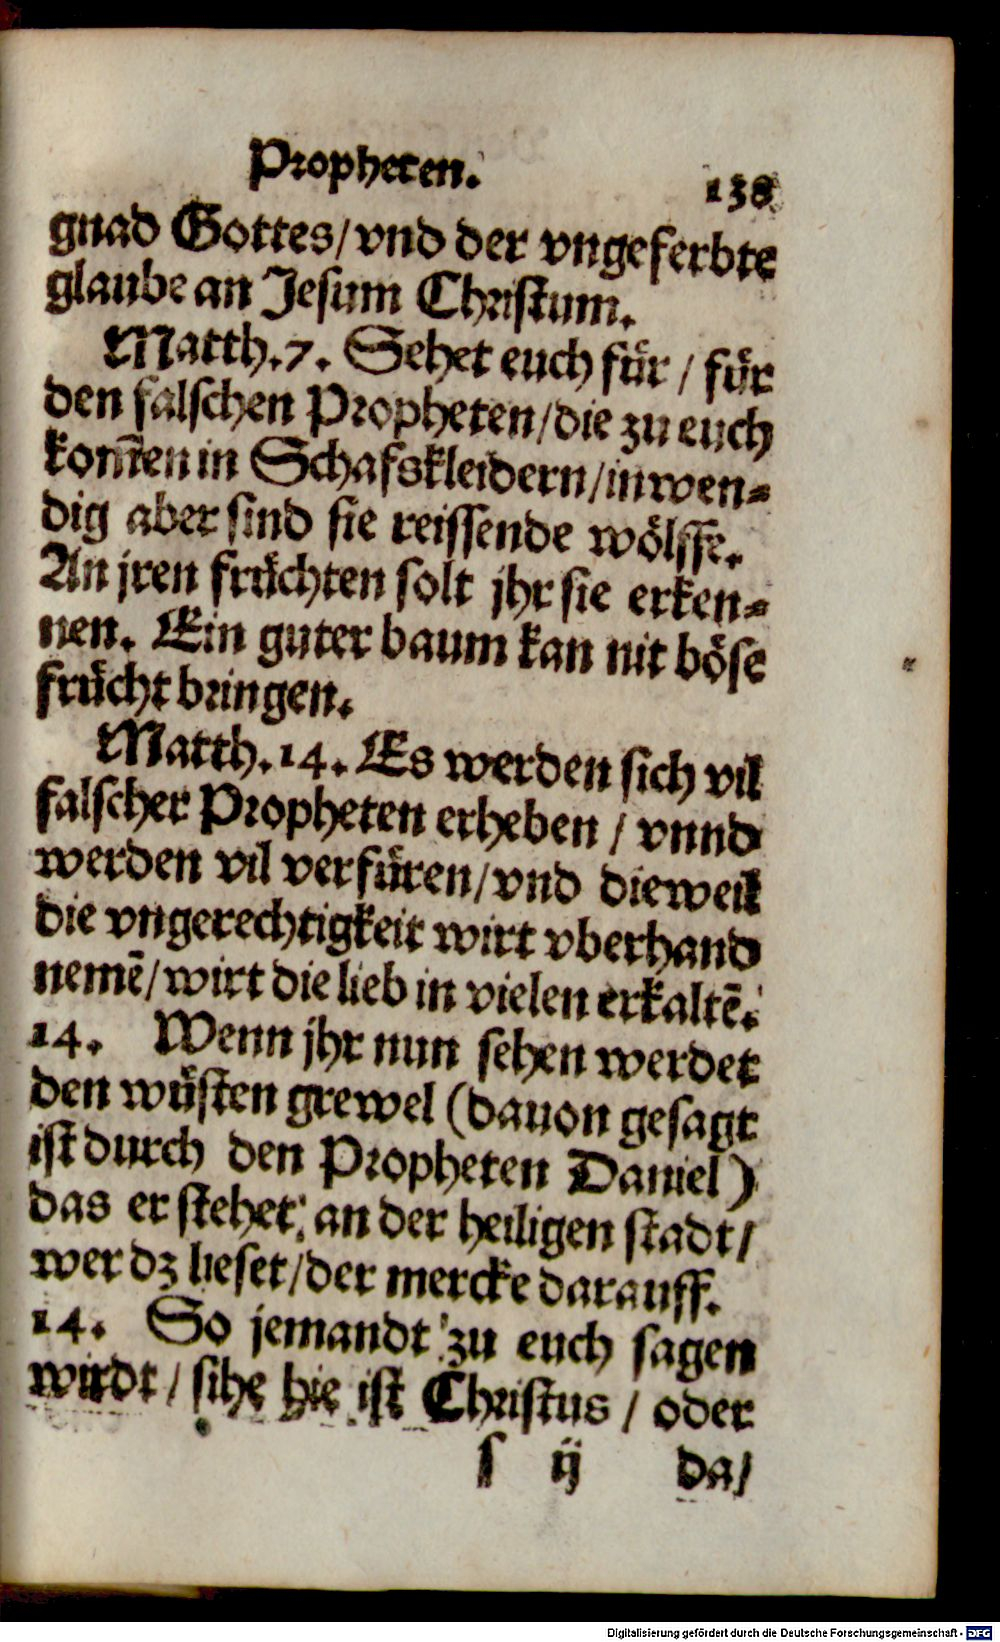 Propheten.
138
gnad Gottes/vnd der vngeferbte
glaube an Jesum Christum.
Matth.7. Sehet euch für / für
den falschen Propheten/die zu euch
kom̃en in Schafskleidern/inwen⸗
dig aber sind sie reissende wölffe.
An jren früchten solt jhr sie erken⸗
nen. Ein guter baum kan nit böse
frücht bringen.
Matth.14. Es werden sich vil
falscher Propheten erheben / vnnd
werden vil verfüren/vnd dieweil
die vngerechtigkeit wirt vberhand
nemẽ/wirt die lieb in vielen erkaltẽ.
14. Wenn jhr nun sehen werdet
den wüsten grewel (dauon gesagt
ist durch den Propheten Daniel)
das er stehet an der heiligen stadt/
wer dz lieset/der mercke darauff.
14. So jemandt zu euch sagen
wirdt / sihe hie ist Christus / oder
s ij da/
Digitalisierung gefördert durch die Deutsche Forschungsgemeinschaft - DFG